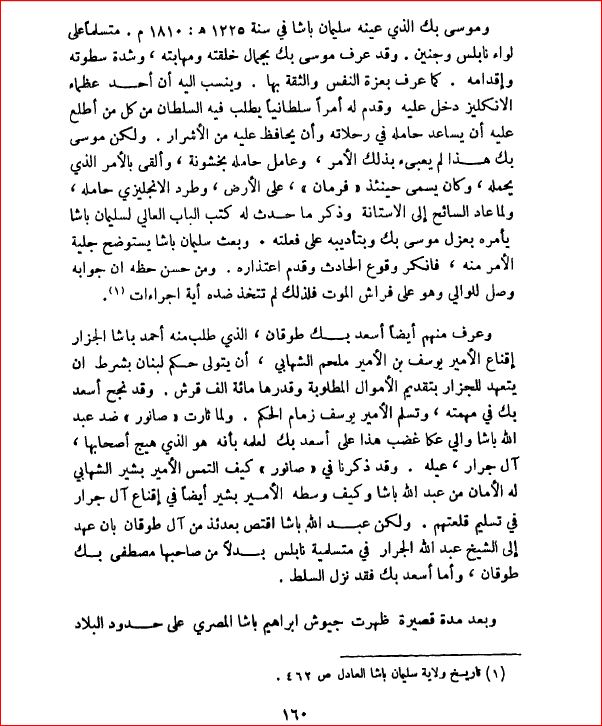 وموسى بك الذي عينه سليمان باشا في سنة ١٢٢٥ ﻫ : ١٨١٠ م . متسلماً على
لواء نابلس وجنين . وقد عرف موسى بك بجمال خلقته ومهابته ، وشدة سطوته
وإقدامه . كما عرف بعزة النفس والثقة بها . وينسب اليه أن أحـد عظماء
الانكليز دخل عليه وقدم له أمراً سلطانياً يطلب فيه السلطان من كل من أطلع
عليه أن يساعد حامله في رحلاته وأن يحافظ عليه من الأشرار . ولكن موسى
بك هـذا لم يعبىء بذلك الأمر ، وعامل حامله بخشونة ، وألقى بالأمر الذي
يحمله ، وكان يسمى حينئذ « فرمان » ، على الأرض ، وطرد الانجليزي حامله ،
ولما عاد السائح إلى الاستانة وذكر ما حدث له كتب الباب العالي لسليمان باشا
يأمره بعزل موسى بك وبتأديبه على فعلته . وبعث سليمان باشا يستوضح جلية
الأمر منه ، فانكر وقوع الحادث وقدم اعتذاره . ومن حسن حظه ان جوابه
وصل للوالي وهو على فراش الموت فلذلك لم تتخذ ضده أية اجراءات (١).
وعرف منهم أيضاً أسعد بـك طوقان ، الذي طلب منه أحمد باشا الجزار
إقناع الأمير يوسف بن الأمير ملحم الشهابي ، أن يتولى حكم لبنان بشرط ان
يتعهد للجزار بتقديم الأموال المطلوبة وقدرها مائة الف قرش . وقد نجح أسعد
بك في مهمته ، وتسلم الأمير يوسف زمام الحكم . ولما ثارت « صانور » ضد عبد
الله باشا والي عكا غضب هذا على أسعد بك لعلمه بأنه هو الذي هيج أصحابها ،
آل جرار ، عيله . وقد ذكرنا في « صانور » كيف التمس الأمير بشير الشهابي
له الأمان من عبد الله باشا وكيف وسطه الأمـير بشير أيضاً في إقناع آل جرار
في تسليم قلعتهم . ولكن عبـد الله باشا اقتص بعدئذ من آل طوقان بان عهد
إلى الشيخ عبد الله الجرار في متسلمية نابلس بـدلاً من صاحبها مصطفى بـك
طوقان ، وأما أسعد بك فقد نزل السلط .
وبعد مدة قصيرة ظهرت جيوش ابراهيم باشا المصري على حـدود البلاد
(١) تاريخ ولاية سليمان باشا العادل ص ٤٦٢ .
١٦٠